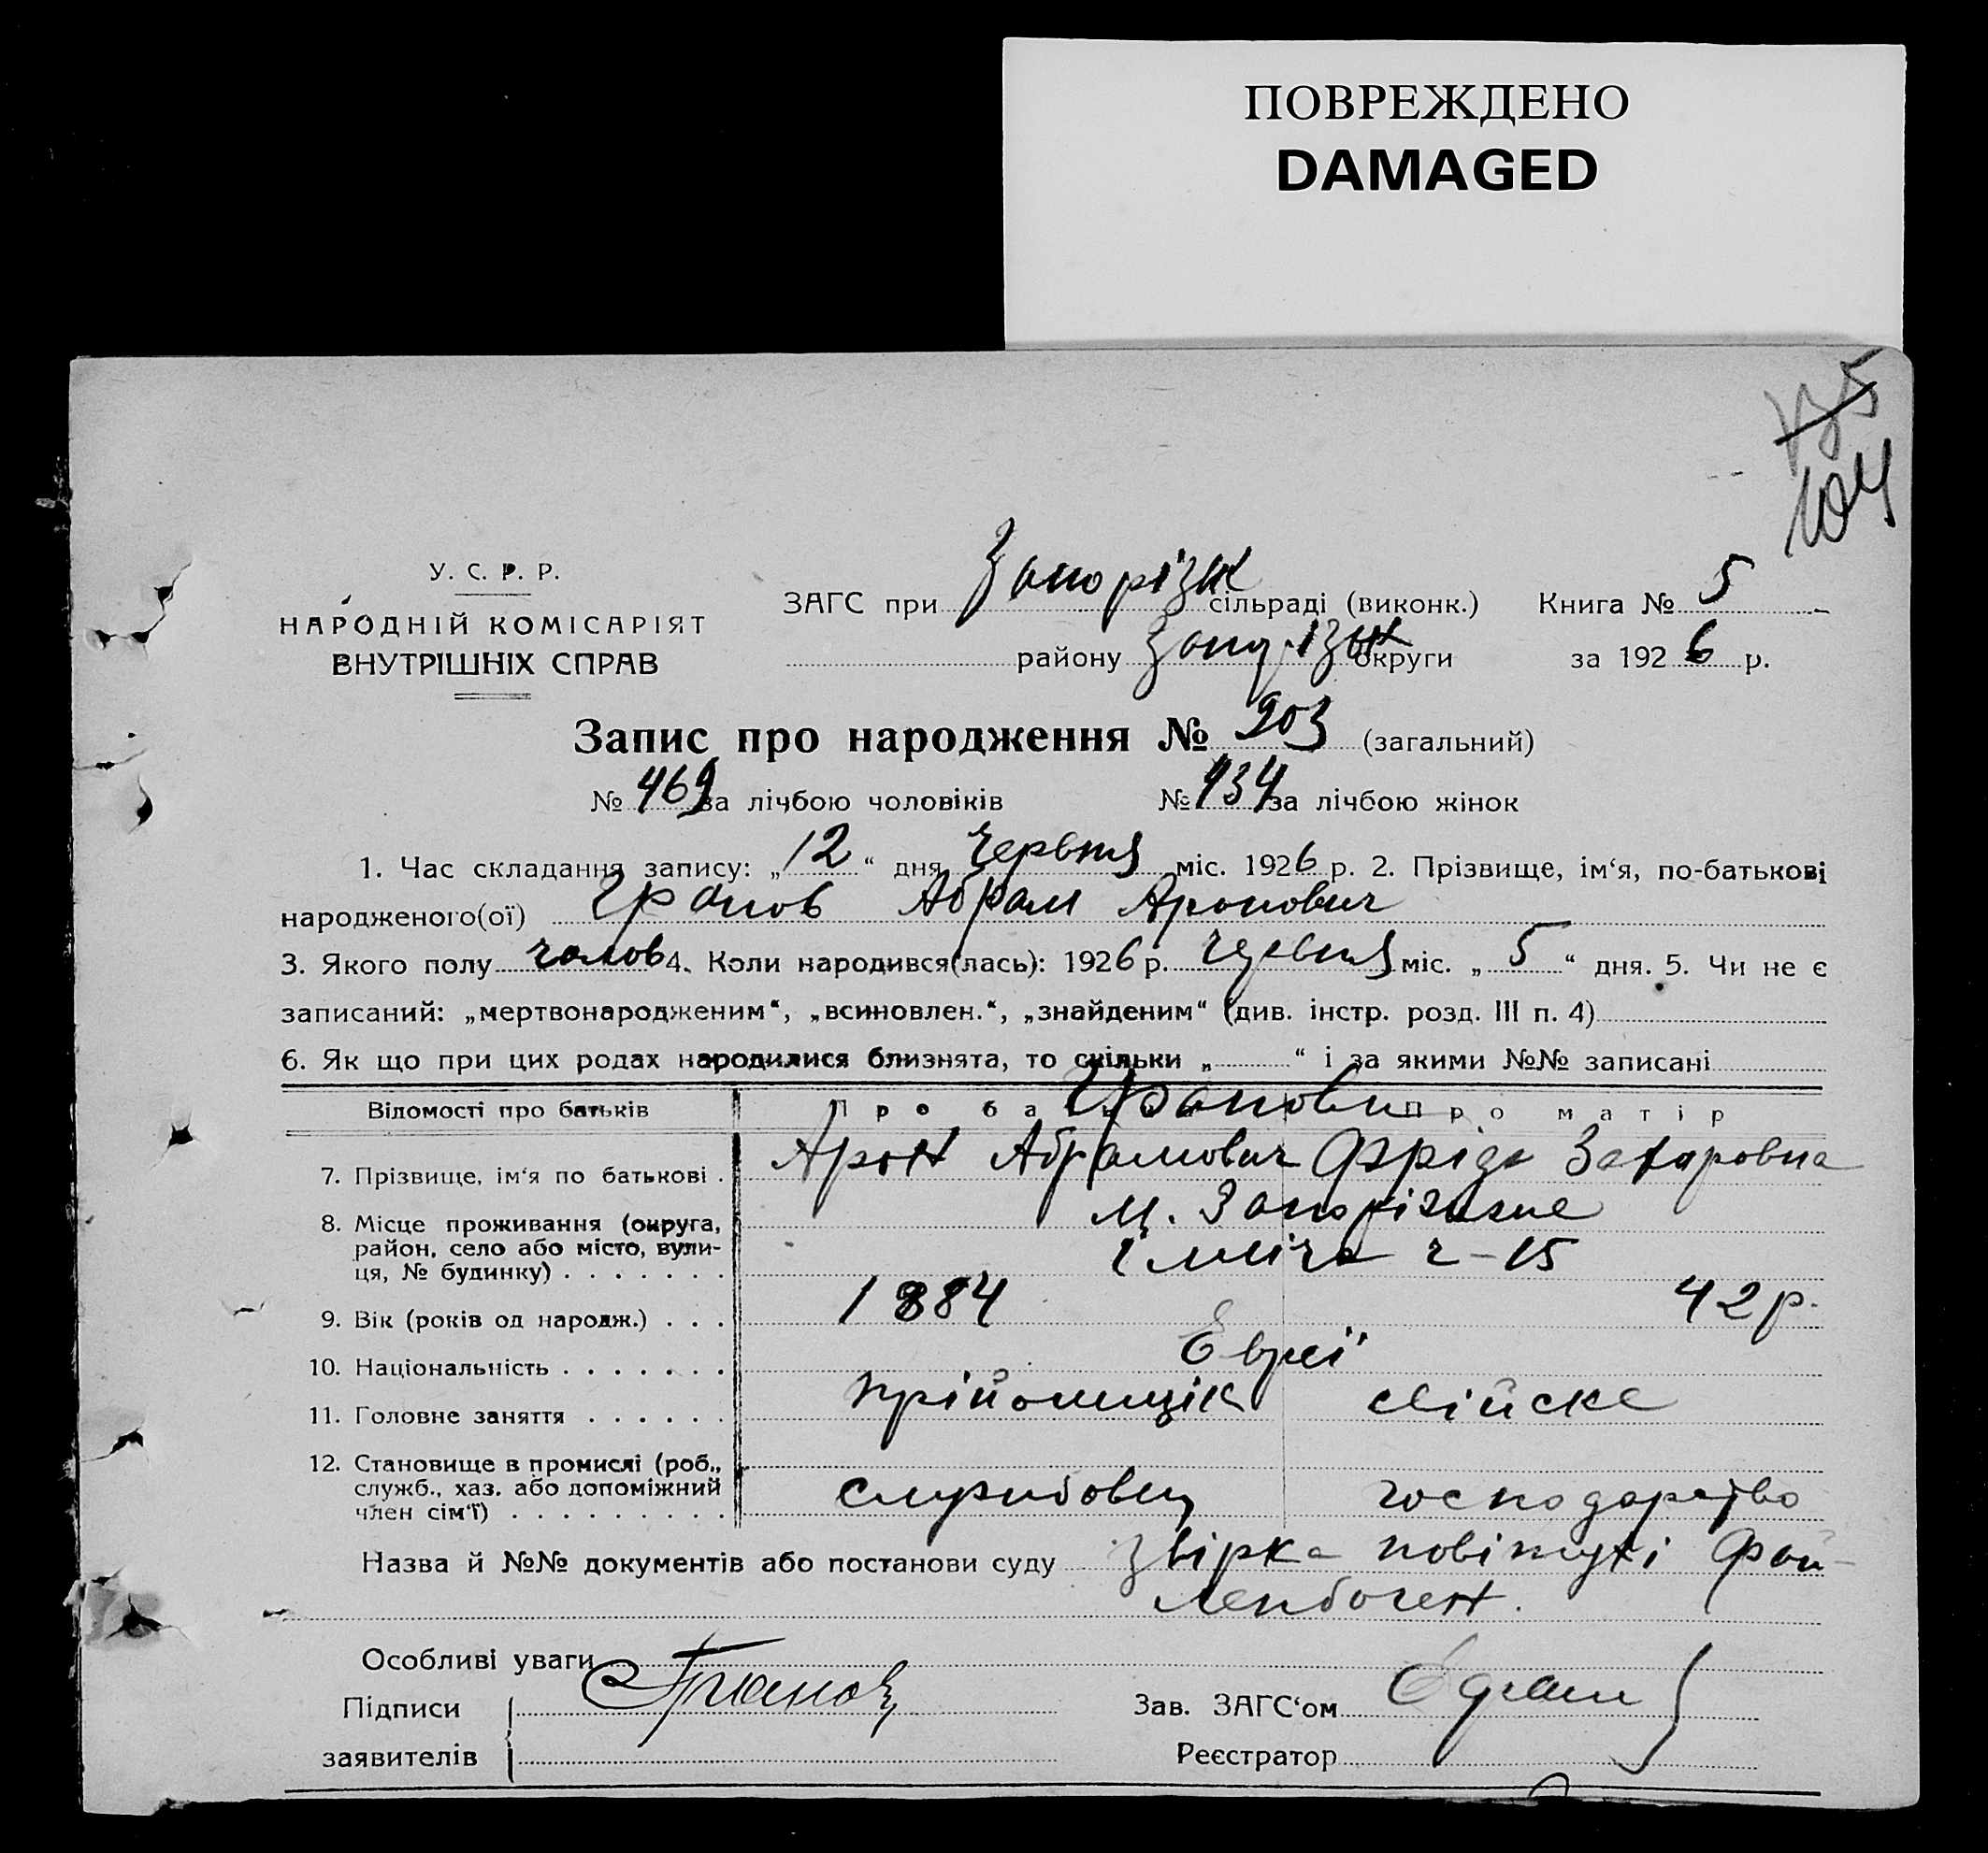 ПОВРЕЖДЕНО
DAMAGED
175
104
У. С. Р. Р.
НАРОДНІЙ КОМІСАРІЯТ
ВНУТРІШНІХ СПРАВ
ЗАГС при Запорізк сільраді (виконк.) Книга № 5
району Запорізьк округи за 1926 р.
Запис про народження № 903 (загальний)
№ 469 за лічбою чоловіків № 434 за лічбою жінок
1. Час складання запису: „12“ дня Червня міс. 1926 р. 2. Прізвище, ім‘я, по-батькові
народженого(ої) Гранов Абрам Аронович
3. Якого полу чолов 4. Коли народився(лась): 1926 р. Червня міс. „5“ дня. 5. Чи не є
записаний: „мертвонародженим“, „всиновлен.“, „знайденим“ (див. інстр. розд. III п. 4)
6. Як що при цих родах народилися близнята, то скільки „ “ і за якими №№ записані
Відомості про батьків Про батька Про матір
Гранови
7. Прізвище, ім‘я по батькові . Арон Абрамович Фріда Захаровна
8. Місце проживання (округа, м. Запоріжжє
район, село або місто, вули-
ця, № будинку) . . . . . . . Ілліча 2-15
9. Вік (років од народж.) . . . 1884 42 р.
10. Національність . . . . . . . Євреї
11. Головне заняття . . . . . . прійомщік свійске
12. Становище в промислі (роб.,
служб., хаз. або допоміжний
член сім‘ї) . . . . . . . . . службовец господарство
Назва й №№ документів або постанови суду Звірка повітухі Фай-
ленбоген.
Особливі уваги
Підписи Гранов Зав. ЗАГС‘ом
заявителів Реєстратор